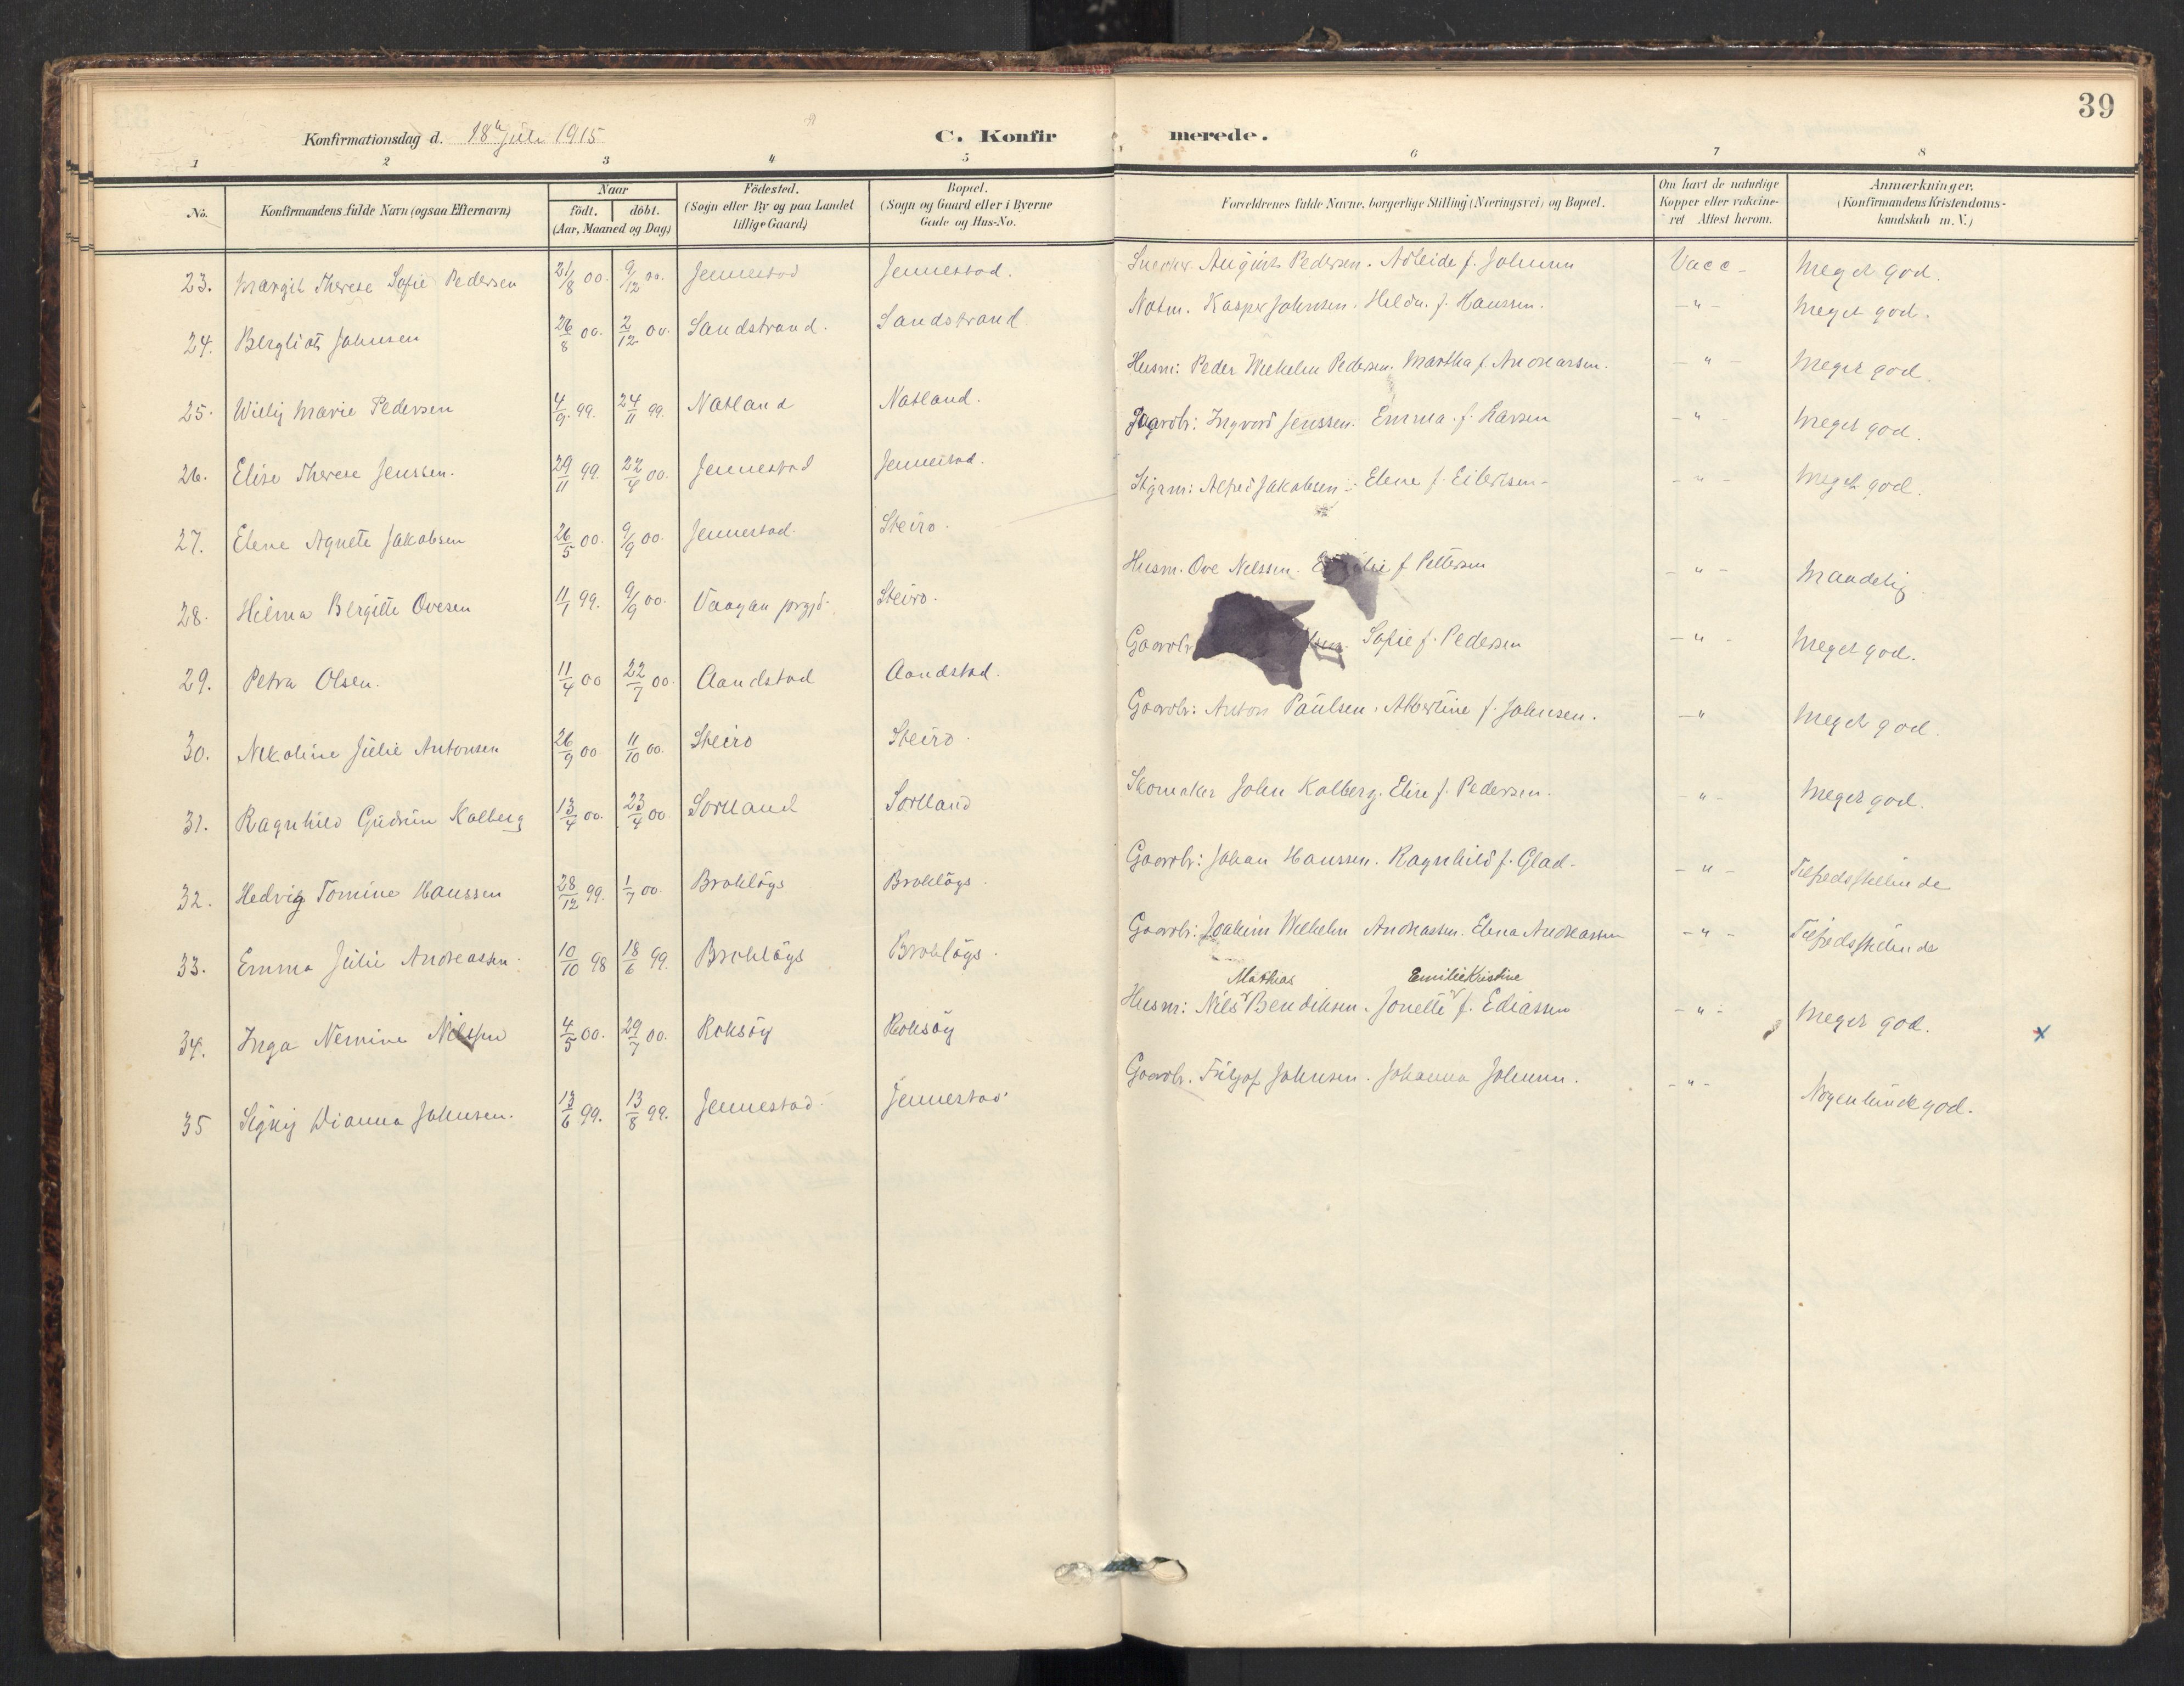 39
Konfirmationsdag d. 18 Juli 1915
C. Konfirmerede.
1 2 3 4 5 6 7 8
No.
Konfirmandens fulde Navn (ogsaa Efternavn)
Naar
födt. döbt.
(Aar, Maaned og Dag)
Födested.
(Sogn eller By og paa Landet
tillige Gaard)
Bopæl.
(Sogn og Gaard eller i Byerne
Gade og Hus-No.
Forældrenes fulde Navne, borgerlige Stilling (Næringsvei) og Bopæl.
Om havt de naturlige
Kopper eller vakcine-
ret Attest herom.
Anmærkninger.
(Konfirmandens Kristendoms-
kundskab m. V.)
23. Margit Therese Sofie Pedersen 21/8 00. 9/12 00. Jennestad Jennestad. August Pedersen. Adleide f. Johnsen Vacc- Meget god.
24. Bergliot Johnsen 26/8 00. 2/12 00. Sandstrand. Sandstrand Kasper Johnsen. f. Hanssen. -"- Meget god.
25. Marie Pedersen 4/9 99. 24/11 99. Natland Natland. Husm: Peder Pedersen. Martha f. Andreassen. -"- Meget god.
26. Elise Therese Jenssen. 29/11 99. 22/4 00. Jennestad Jennestad. Gaardbr: Ingvard Jenssen. Emma f. Larsen -"- Meget god.
27. Elene Agnete Jakobsen 26/5 00. 9/9 00. Jennestad. Steiro. Alfred Jakobsen. Elene f. Eilertsen- -"- Meget god.
28. Hilma Bergitte Ovesen 11/1 99. 9/9 00. Vaagan prgjd. Steiro. Husm. Ove Nilssen. f. Pettersen -"- Maadelig
29. Petra Olsen. 11/4 00 22/7 00. Aandstad Aandstad. Gaardbr Sofie f. Pedersen -"- Meget god.
30. Nikoline Julie Antonsen 26/9 00 11/10 00. Steiro Steiro. Gaardbr: Anton Paulsen. Albertine f. Johnsen. -" Meget god.
31. Ragnhild Gudrun Kalberg 13/4 00. 23/4 00. Sortland Sortland Skomaker John Kalberg. Elise f. Pedersen. -"- Meget god.
32. Hedvig Tomine Hanssen 28/12 99. 1/7 00. Brokløys Brokløys. Gaardbr: Johan Hanssen. Ragnhild f. Glad- -"- Tilfredsstillende
33. Emma Julie Andreassen. 10/10 98 18/6 99. Brokløys Brokløys. Gaardbr: Joakim Wilhelm Andreassen. Elena Andreassen -"- Tilfredsstillende
Mathias Emilie Kristine
34. Inga Nemine Nilssen 4/5 00. 29/7 00. Roksøy Roksøy Husm: Nils Bendiksen. Jonette f. Ediassen -"- Meget god. x
35 Signy Dianna Johnsen. 13/6 99. 13/8 99. Jennestad. Jennestad. Gaardbr. Johnsen. Johanna Johnsen. -"- Nogenlunde god.